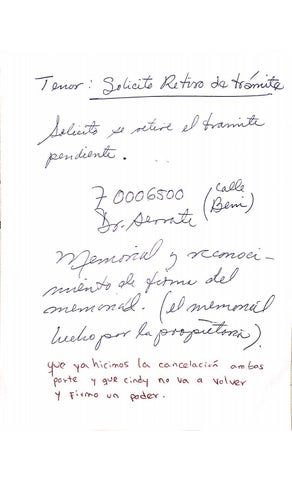 Tenor: Solicito Retiro de trámite
Solicito se retire el tramite
pendiente.
70006500 (Calle
Dr. Serrate Beni)
Memorial y reconoci-
miento de firma del
memorial. (el memorial
hecho por la propietaria).
que ya hicimos la cancelación ambas
parte y que cindy no va a volver
y Firmo un poder.